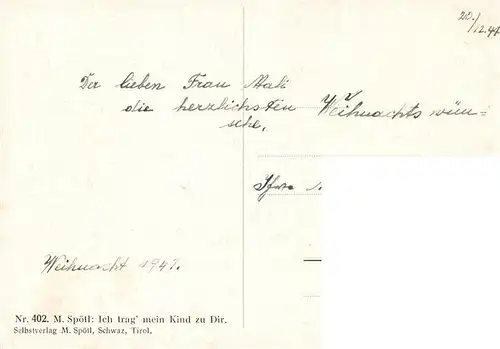 20./12.47
Der lieben Frau Mali
die herzlichsten Weihnachtswün=
sche.
Weihnacht 1947.
Nr. 402. M. Spötl: Ich trag' mein Kind zu Dir.
Selbstverlag M. Spötl, Schwaz, Tirol.